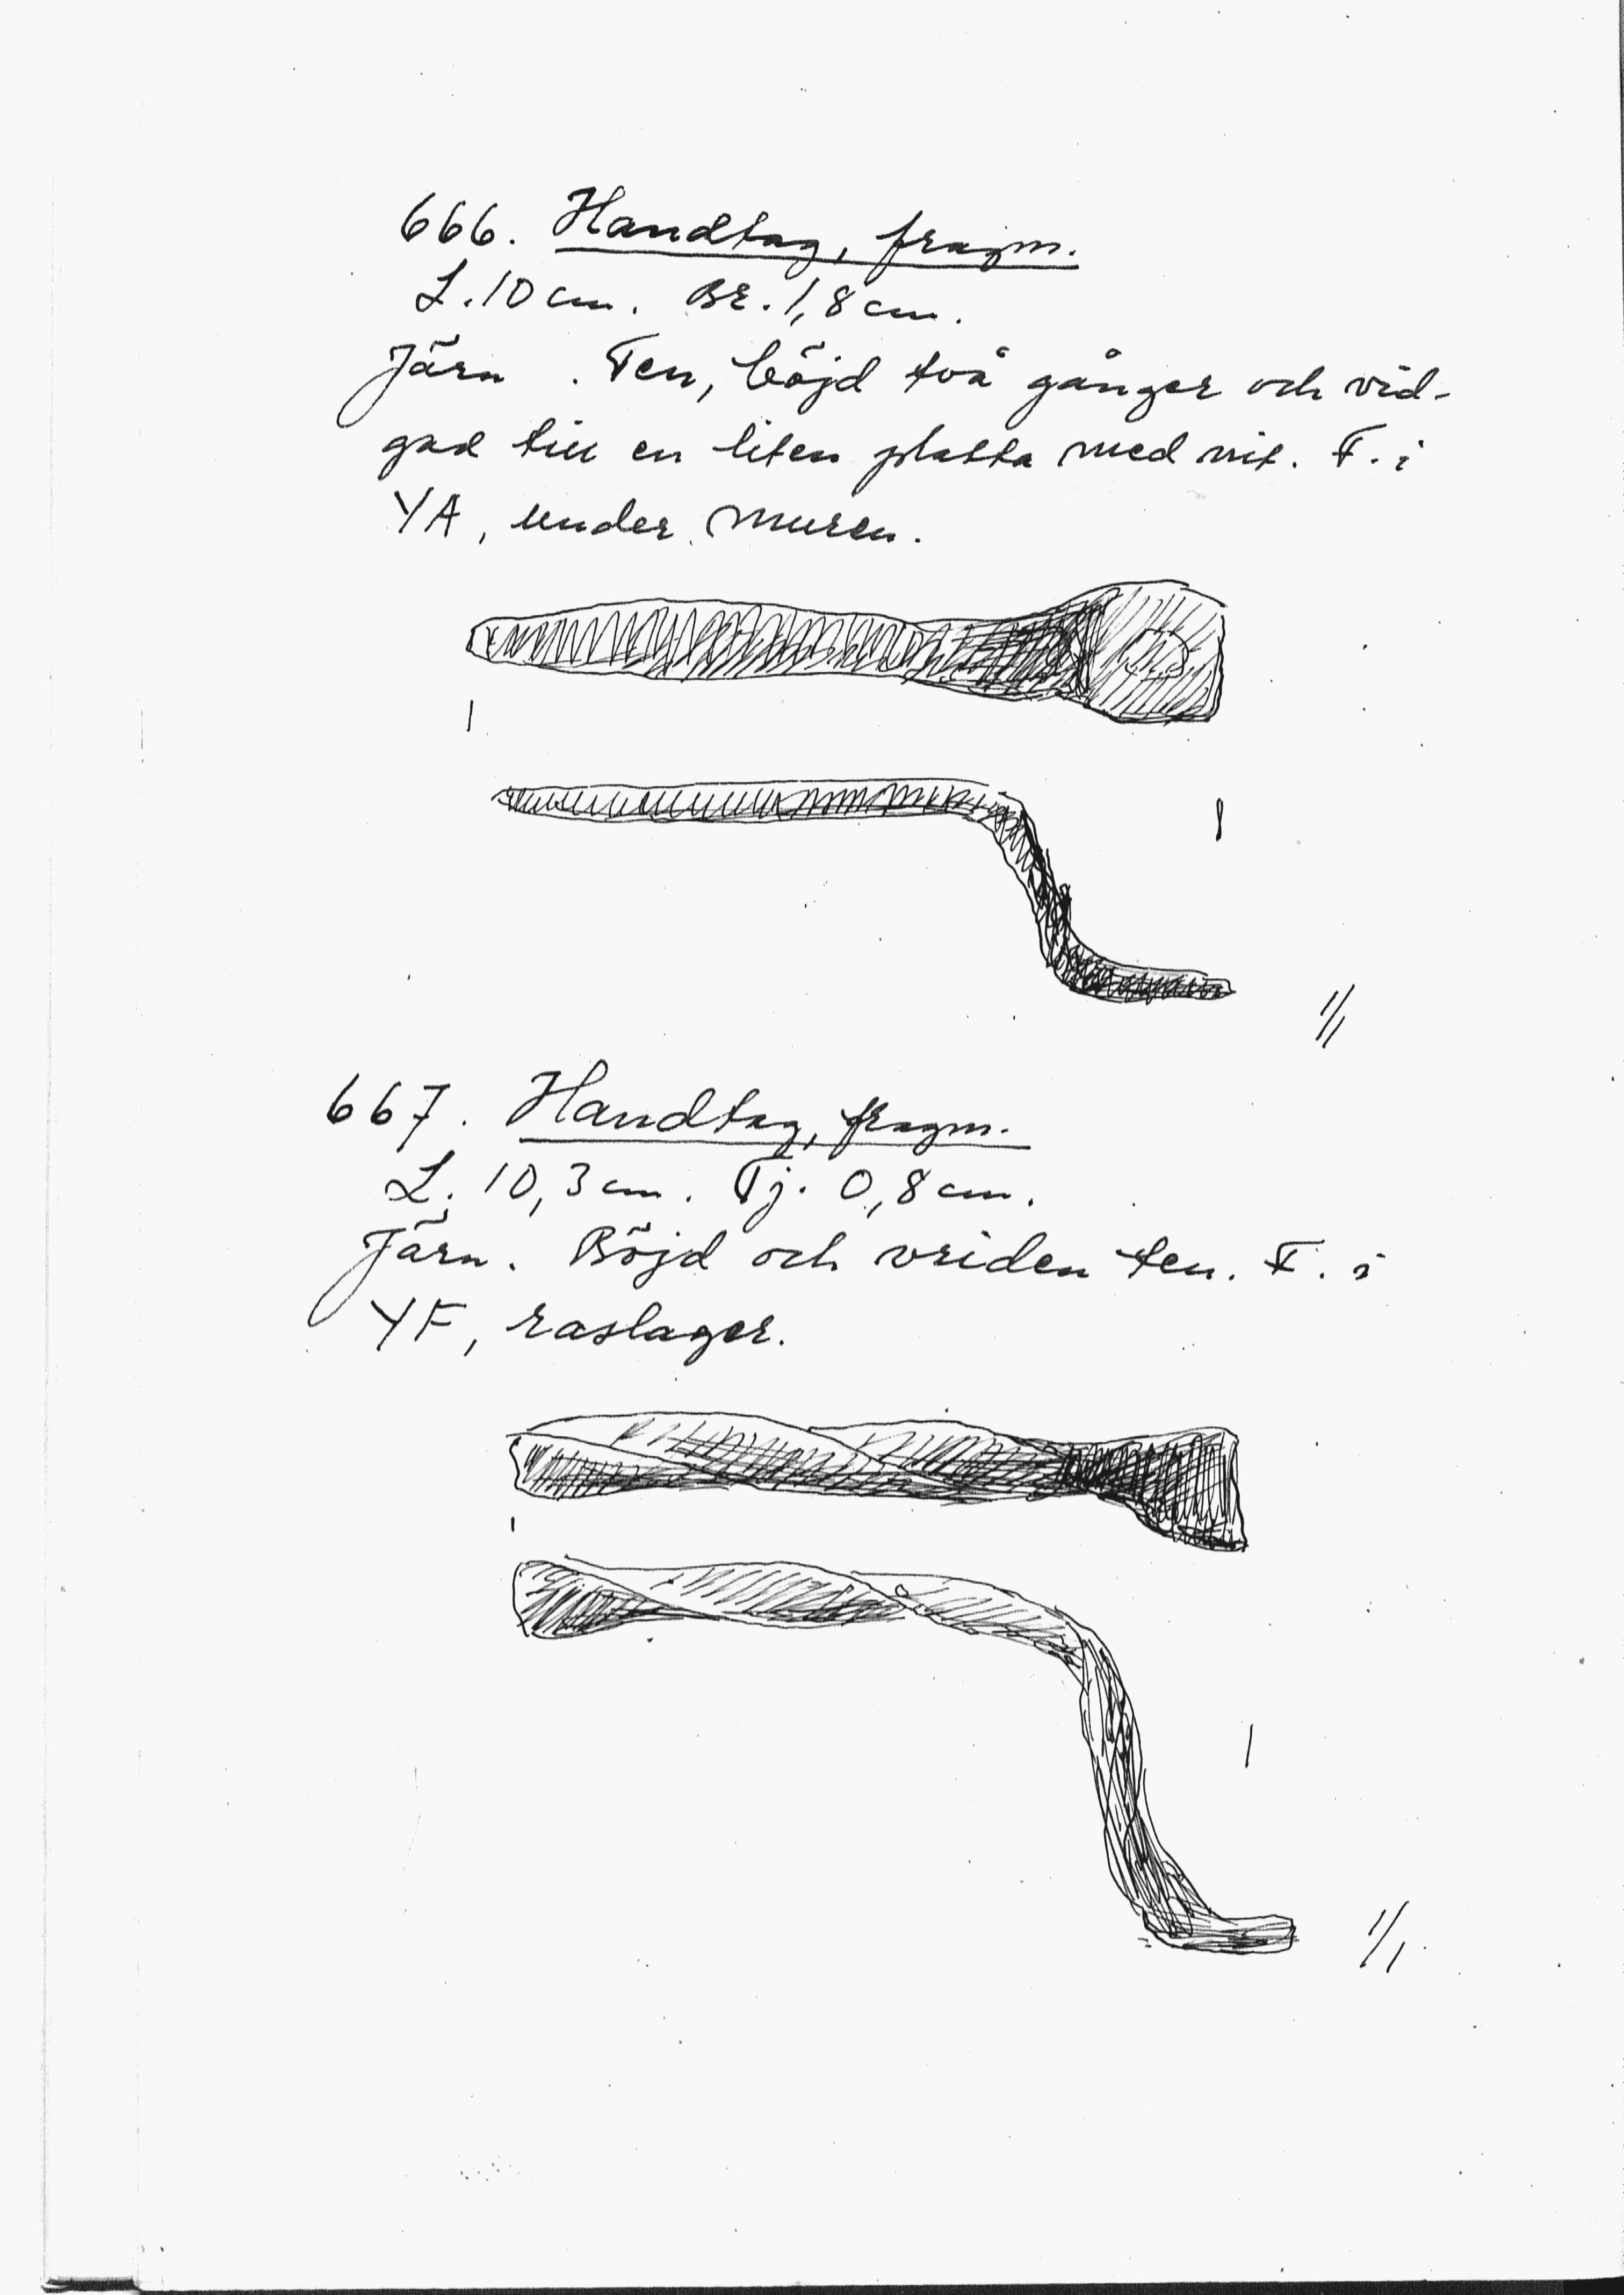 666. Handtag, fragm.
L. 10 cm. Br. 1,8 cm.
Järn . Ten, böjd två gånger och vid-
gad till en liten platta med nit. F. i
YA, under muren.
1/1
667. Handtag, fragm.
L. 10,3 cm. Tj. 0,8 cm.
Järn. Böjd och vriden ten. F. i
YF, raslager.
1/1